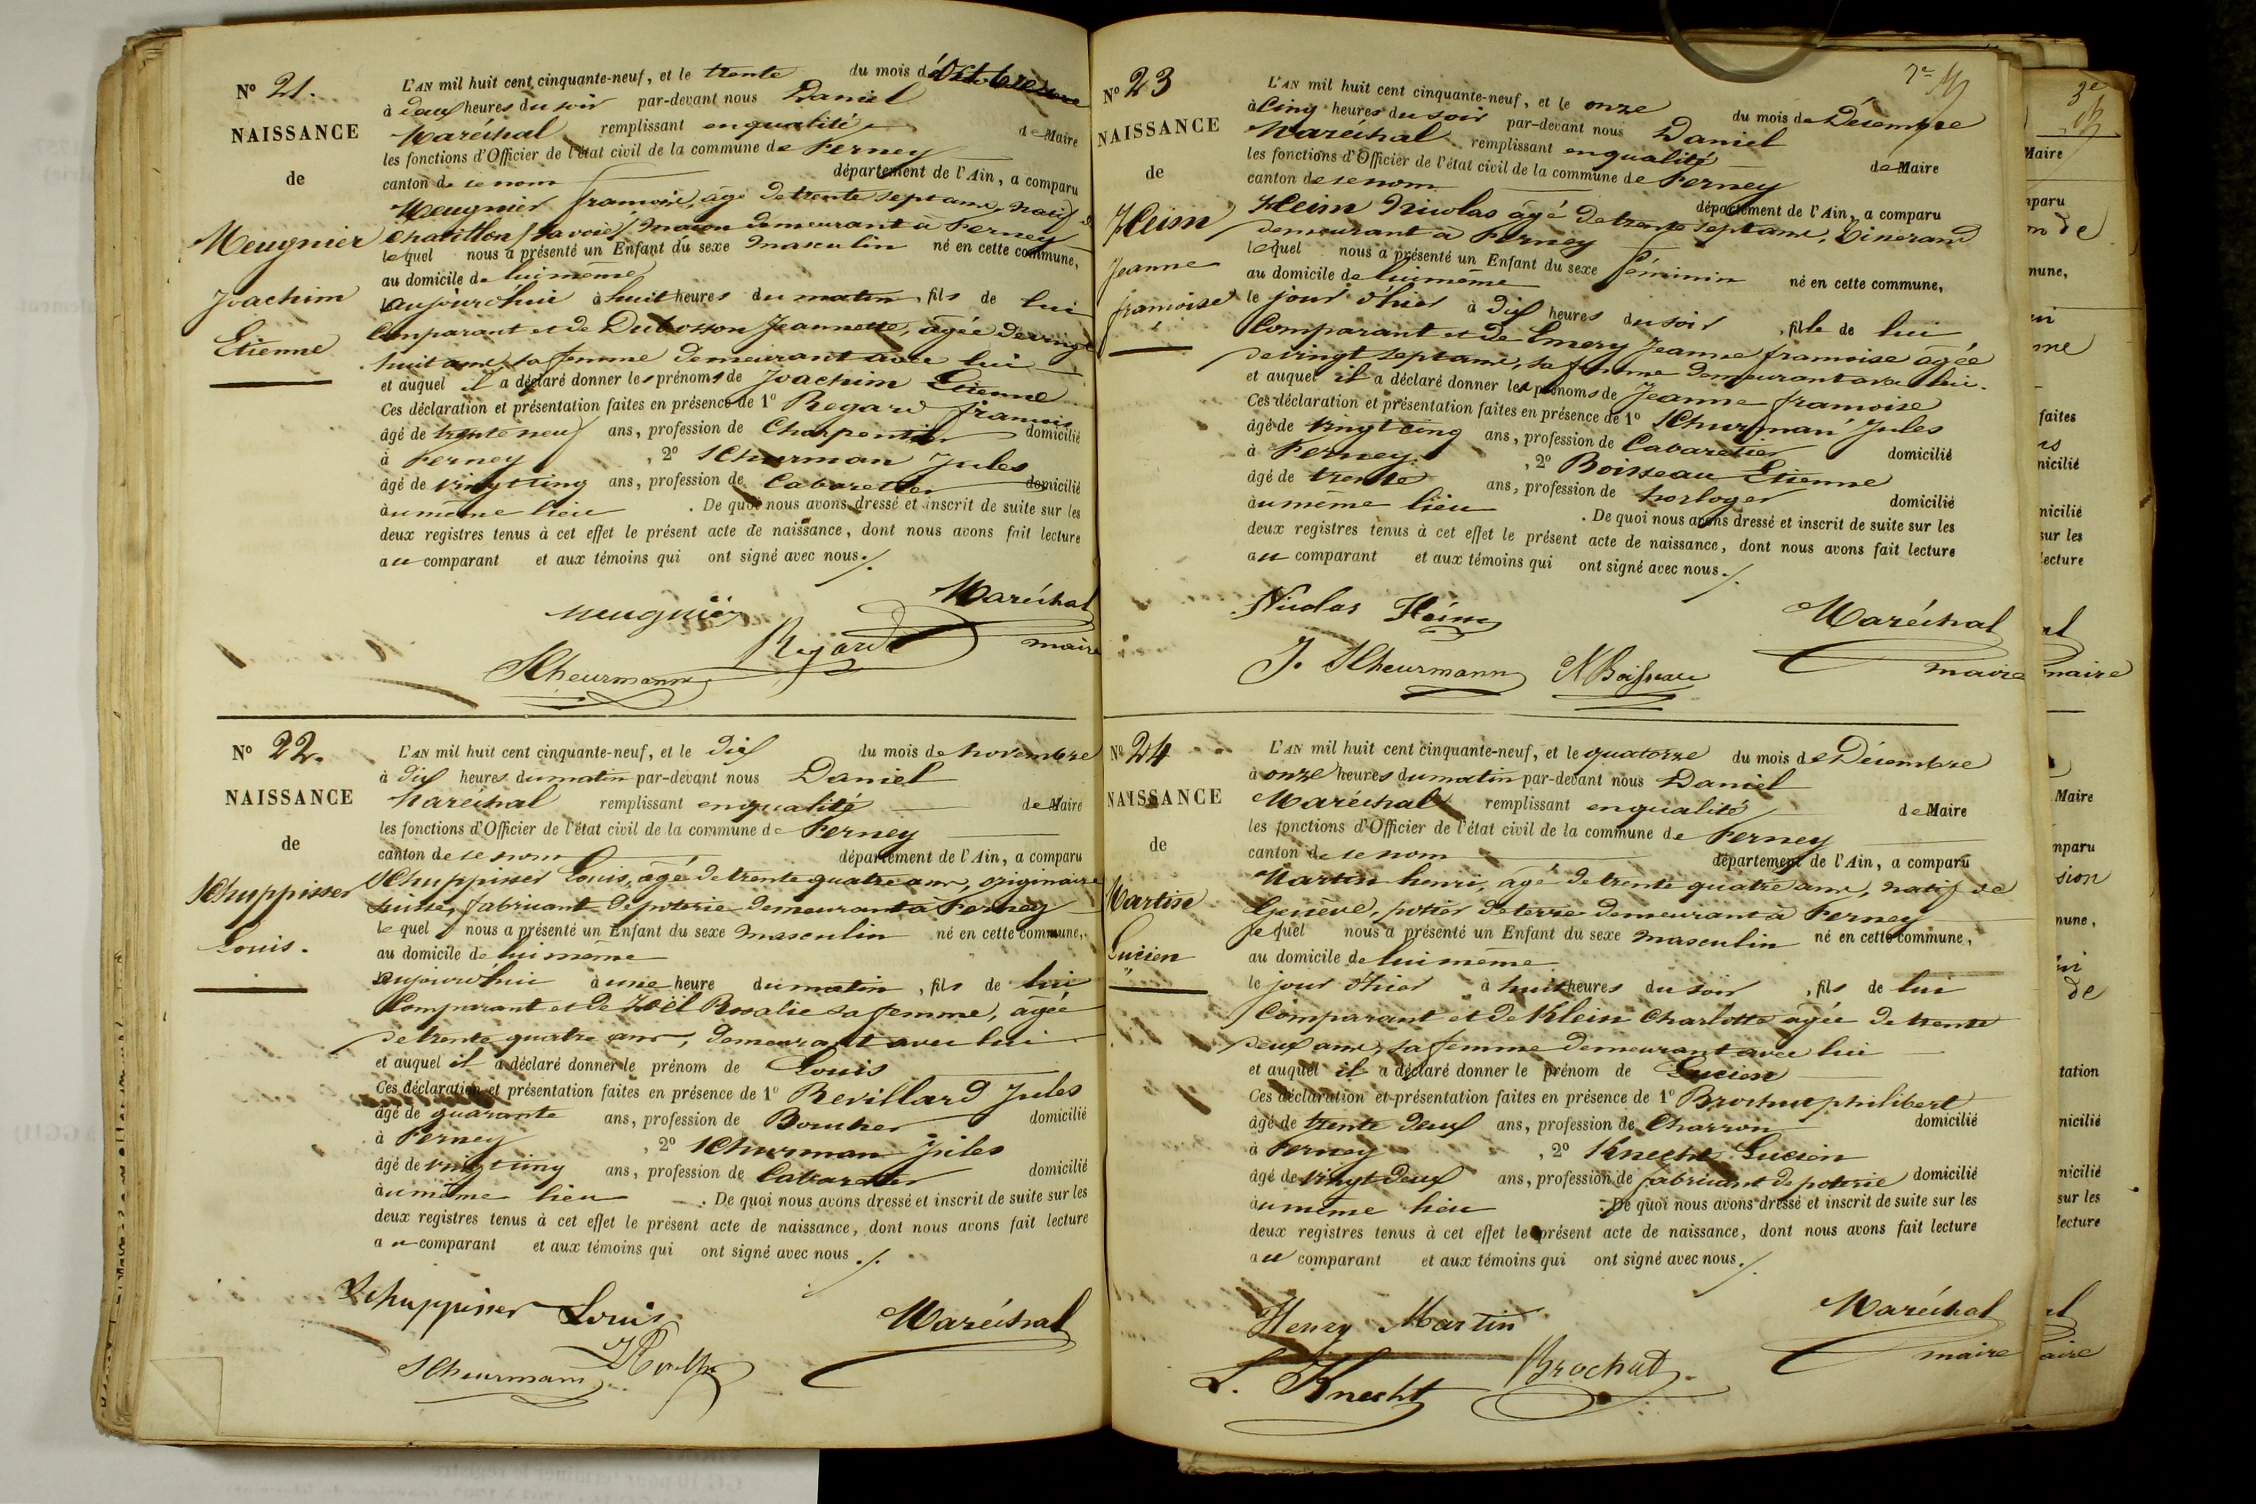 N° 21.
NAISSANCE
de
Meugnier
Joachim
Etienne
L'AN mil huit cent cinquante-neuf, et le trente du mois d'Octobre
à deux heures du soir par-devant nous Daniel
Maréchal remplissant en qualité de Maire
les fonctions d'Officier de l'état civil de la commune de Ferney
canton de ce nom département de l'Ain, a comparu
Meugnier françois, âgé de trente sept ans, natif de
Chatillon (savoie) maçon demeurant à Ferney
lequel nous a présenté un Enfant du sexe masculin né en cette commune,
au domicile de lui même
aujourd'hui à huit heures du matin, fils de lui
Comparant et de Dubosson Jeannette, âgée de vingt
huit ans, sa femme demeurant avec lui
et auquel il a déclaré donner les prénoms de Joachim Etienne
Ces déclaration et présentation faites en présence de 1° Regard françois
âgé de trente neuf ans, profession de Charpentier domicilié
à Ferney, 2° Schurman Jules
âgé de vingt cinq ans, profession de Cabaretier domicilié
au même lieu. De quoi nous avons dressé et inscrit de suite sur les
deux registres tenus à cet effet le présent acte de naissance, dont nous avons fait lecture
au comparant et aux témoins qui ont signé avec nous./.
Maréchal
meugnier
Regard
maire
Scheurmann
N° 22.
NAISSANCE
de
Schuppisser
Louis.
L'AN mil huit cent cinquante-neuf, et le dix du mois de novembre
à dix heures du matin par-devant nous Daniel
Maréchal remplissant en qualité de Maire
les fonctions d'Officier de l'état civil de la commune de Ferney
canton de ce nom département de l'Ain, a comparu
Schuppisser Louis, âgé de trente quatre ans, originaire
suisse, fabricant de poterie demeurant à Ferney
lequel nous a présenté un Enfant du sexe masculin né en cette commune,
au domicile de lui même
aujourd'hui à une heure du matin, fils de lui
Comparant et de Rosalie sa femme, âgée
de trente quatre ans, demeurant avec lui
et auquel il a déclaré donner le prénom de Louis
Ces déclaration et présentation faites en présence de 1° Revillard Jules
âgé de quarante ans, profession de Boucher domicilié
à Ferney, 2° Schurman Jules
âgé de vingt cinq ans, profession de Cabaretier domicilié
au même lieu. De quoi nous avons dressé et inscrit de suite sur les
deux registres tenus à cet effet le présent acte de naissance, dont nous avons fait lecture
au comparant et aux témoins qui ont signé avec nous./.
Schuppisser Louis
Maréchal
Scheurmann
N° 23
NAISSANCE
de
Heim
Jeanne
françoise
L'AN mil huit cent cinquante-neuf, et le onze du mois de Décembre
à Cinq heures du soir par-devant nous Daniel
Maréchal remplissant en qualité de Maire
les fonctions d'Officier de l'état civil de la commune de Ferney
canton de ce nom département de l'Ain, a comparu
Heim Nicolas âgé de trente sept ans,
demeurant à Ferney
lequel nous a présenté un Enfant du sexe féminin né en cette commune,
au domicile de lui même
le jour d'hier à dix heures du soir, fille de lui
Comparant et de Emery Jeanne françoise âgée
de vingt sept ans, sa femme demeurant avec lui.
et auquel il a déclaré donner les prénoms de Jeanne françoise
Ces déclaration et présentation faites en présence de 1° Schurman Jules
âgé de vingt cinq ans, profession de Cabaretier domicilié
à Ferney, 2° Boisseau Etienne
âgé de trente ans, profession de horloger domicilié
au même lieu. De quoi nous avons dressé et inscrit de suite sur les
deux registres tenus à cet effet le présent acte de naissance, dont nous avons fait lecture
au comparant et aux témoins qui ont signé avec nous./.
Nicolas Heim
Maréchal
J. Scheurmann Boisseau
maire
N° 24
NAISSANCE
de
Martin
Lucien
L'AN mil huit cent cinquante-neuf, et le quatorze du mois de Décembre
à onze heures du matin par-devant nous Daniel
Maréchal remplissant en qualité de Maire
les fonctions d'Officier de l'état civil de la commune de Ferney
canton de ce nom département de l'Ain, a comparu
Martin henri, âgé de trente quatre ans, natif de
Genève, potier de terre demeurant à Ferney
lequel nous a présenté un Enfant du sexe masculin né en cette commune,
au domicile de lui même
le jour d'hier à huit heures du soir, fils de lui
Comparant et de Klein Charlotte âgée de trente
deux ans, sa femme demeurant avec lui
et auquel il a déclaré donner le prénom de Lucien
Ces déclaration et présentation faites en présence de 1° Brochut philibert
âgé de trente deux ans, profession de Charron domicilié
à Ferney, 2° Knecht Lucien
âgé de vingt deux ans, profession de fabricant de poterie domicilié
au même lieu. De quoi nous avons dressé et inscrit de suite sur les
deux registres tenus à cet effet le présent acte de naissance, dont nous avons fait lecture
au comparant et aux témoins qui ont signé avec nous./.
Henry Martin
Maréchal
maire
L. Knecht Brochut